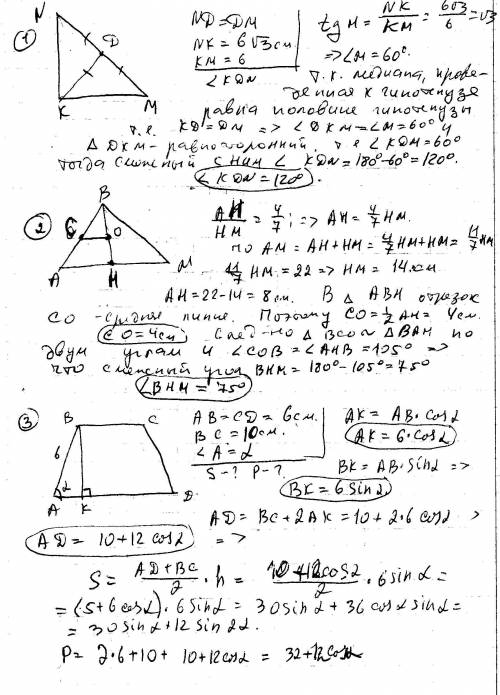 ① N D K M
ND = DM
NK = 6√3 см.
KM = 6
∠KDN
tg M = NK/KM = 6√3/6 = √3
=> ∠M = 60°.
т.к. медиана, прове-
денная к гипотенузе
равна половине гипотенузы
т.е. KD = DM => ∠DKM = ∠M = 60° и
Δ DKM - равносторонний. т.е ∠KDM = 60°
тогда смежный с ним ∠ KDN = 180° - 60° = 120°.
∠KDN = 120°.
② B C O A H M
AH/HM = 4/7; => AH = 4/7 HM.
по AM = AH + HM = 4/7 HM + HM = 11/7 HM
11/7 HM = 22 => HM = 14 см
AH = 22 - 14 = 8 см. В Δ ABH отрезок
CO - средняя линия. Поэтому CO = 1/2 AH = 4 см.
CO = 4 см. След-но Δ BCO ~ Δ BAH по
двум углам и ∠COB = ∠AHB = 105° =>
что смежный угол BHM = 180° - 105° = 75°
∠BHM = 75°
③ B C 6 α A K D
AB = CD = 6 см.
BC = 10 см.
∠A = α
S - ? P - ?
AK = AB · cos α
AK = 6 · cos α
BK = AB · sin α =>
BK = 6 sin α
AD = BC + 2AK = 10 + 2·6 cos α
AD = 10 + 12 cos α =>
S = AD + BC/2 · h = 10 + 12 cos α/2 · 6 sin α =
= (5 + 6 cos α) · 6 sin α = 30 sin α + 36 cos α sin α =
= 30 sin α + 12 sin 2α.
P = 2·6 + 10 + 10 + 12 cos α = 32 + 12 cos α